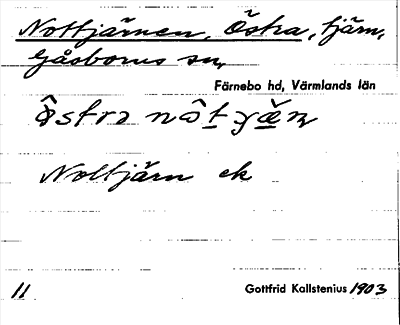 Nottjärnen, Östra, tjärn,
Gåsborns sn,
Färnebo hd, Värmlands län
östra nôt yæ̂n
Nottjärn ek
11
Gottfrid Kallstenius 1903